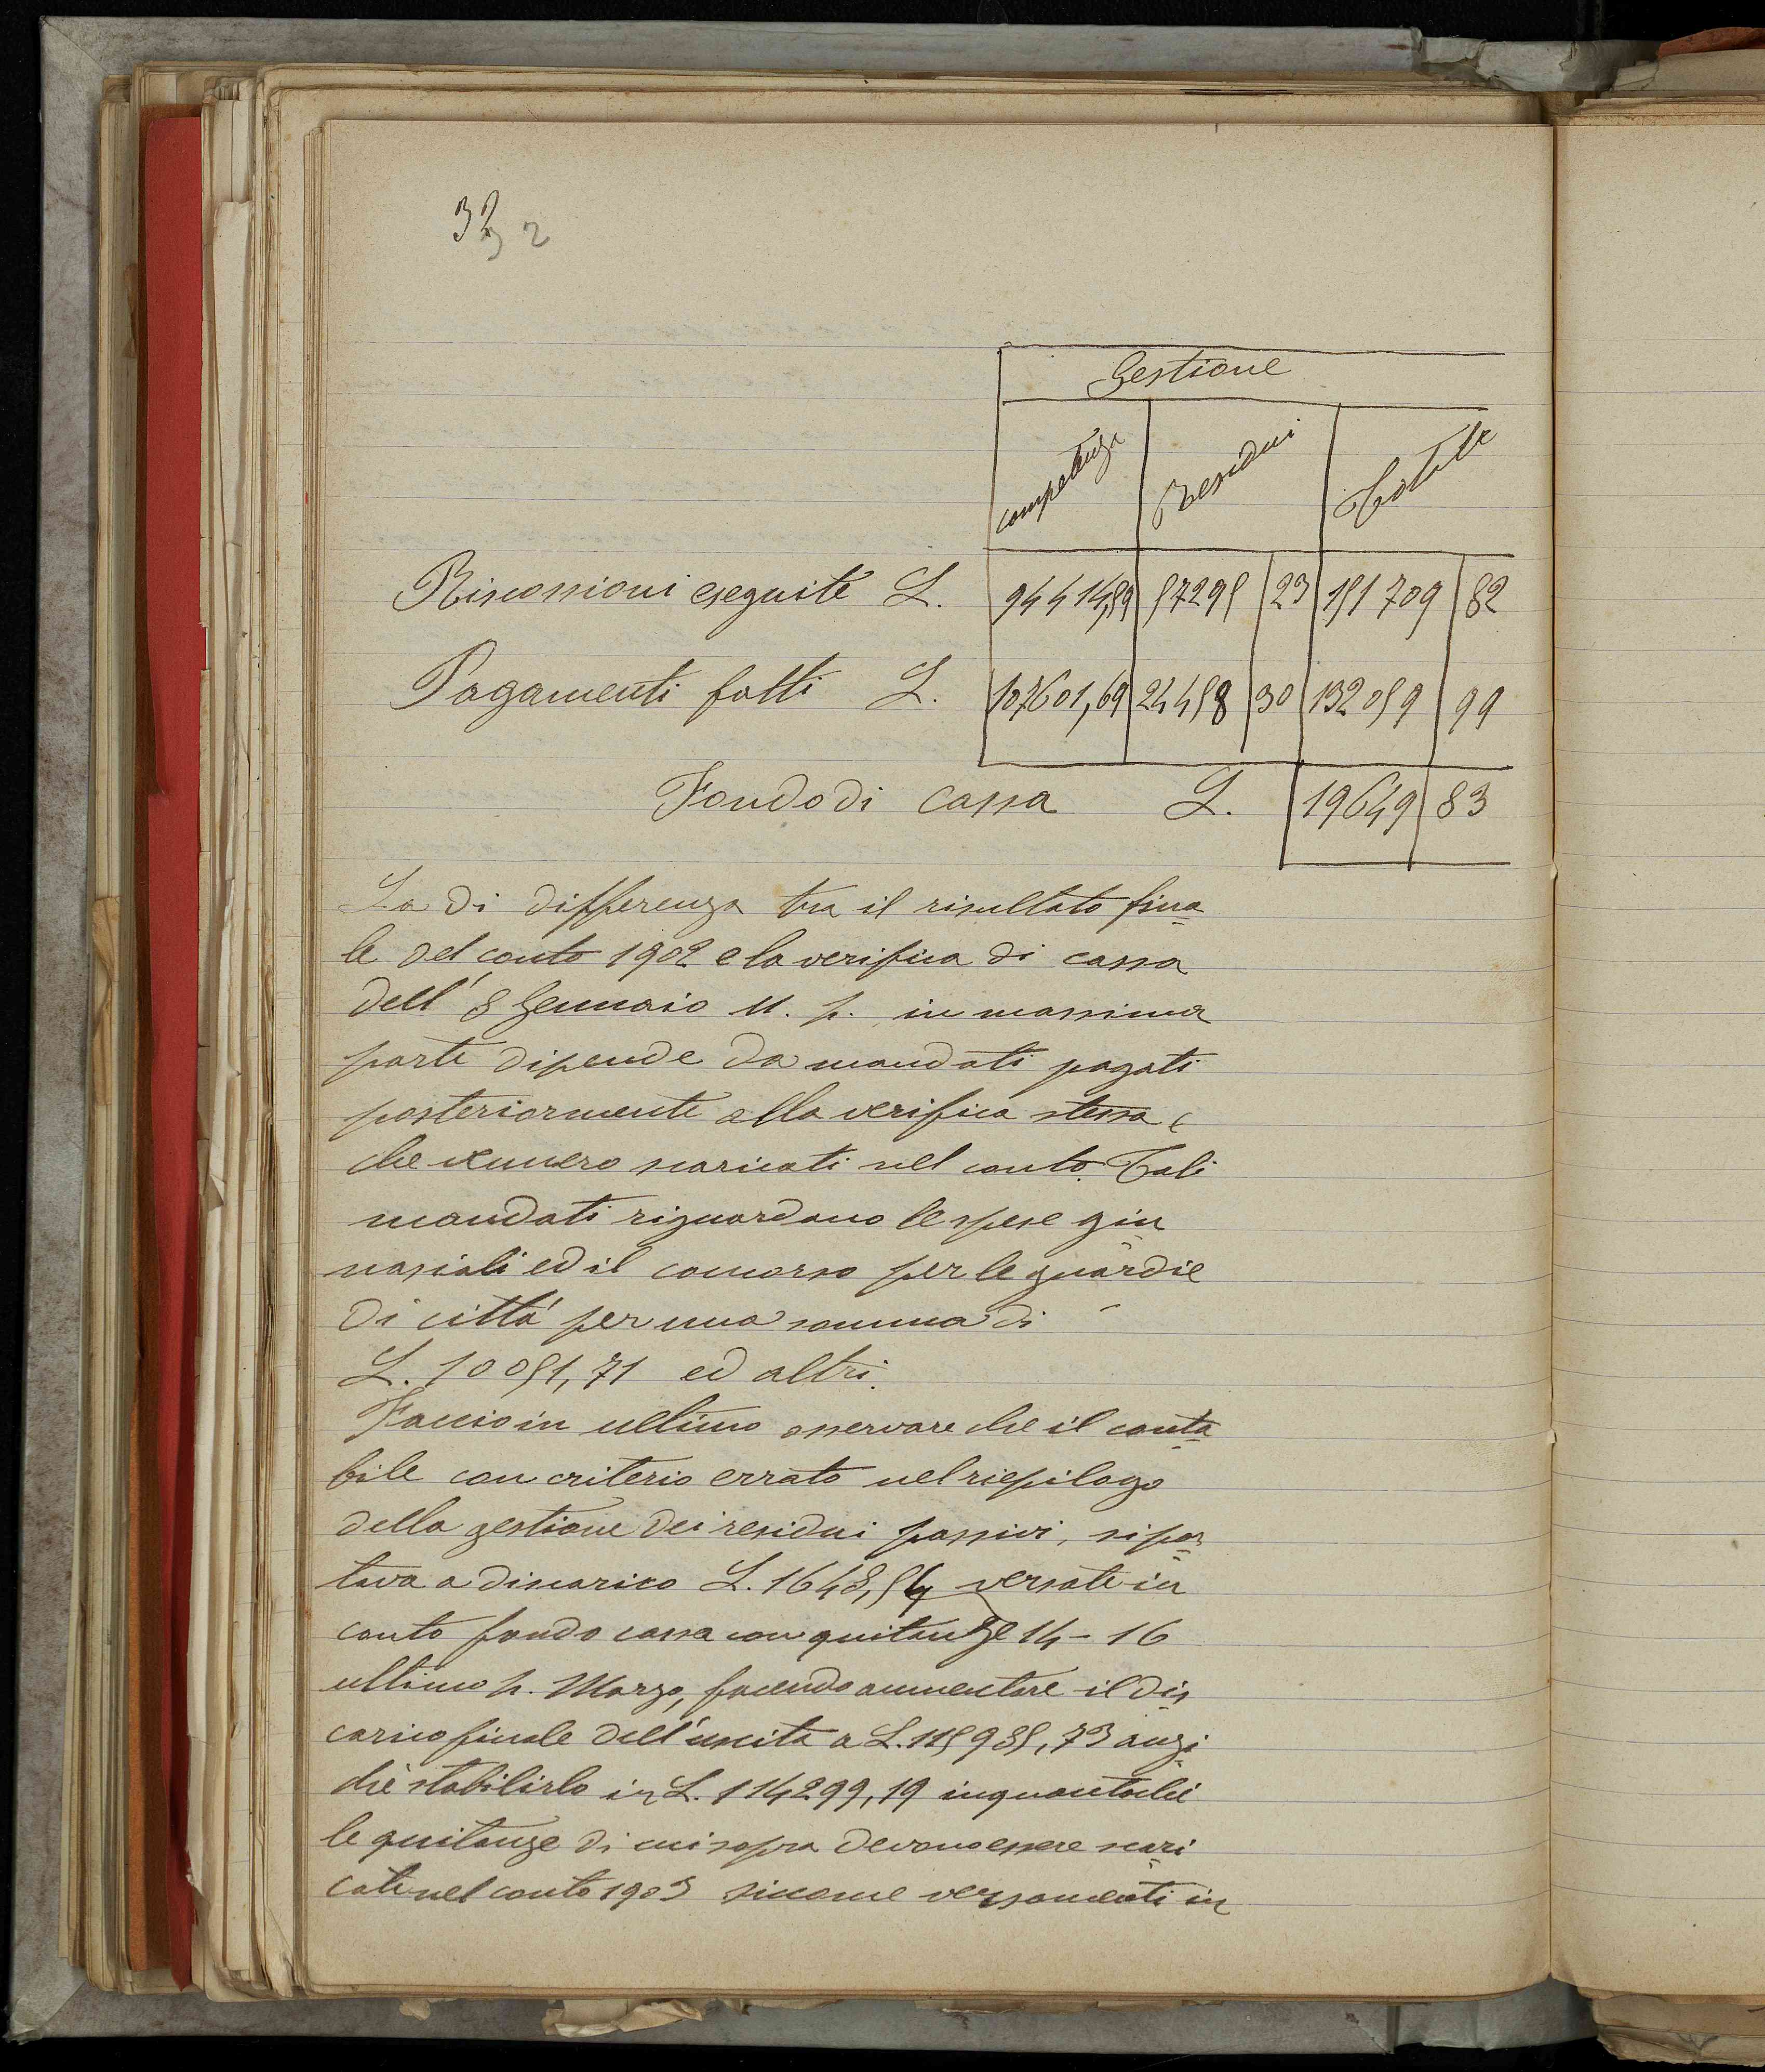 32 2
Gestione
competenza Residui Totale
Riscossioni eseguite L. 94414,59 57295 23 151709 82
Pagamenti fatti L. 107601,69 24458 30 132059 99
Fondo di cassa L. 19649 83
La di differenza tra il risultato fina
le del conto 1902 e la verifica di cassa
dell' 8 Gennaio u. p. in massima
parte dipende da mandati pagati
posteriormente alla verifica stessa e
che vennero scaricati nel conto. Tali
mandati riguardano le spese gin
nasiali ed il concorso per le guardie
di città per una somma di
L. 10051,71 ed altri.
Faccio in ultimo osservare che il conta
bile con criterio errato nel riepilogo
della gestione dei residui passivi, ripor
tava a discarico L. 1648,54 versate in
conto fondo cassa con quitanze 14-16
ultimo p. Marzo, facendo aumentare il dis
carico finale dell'uscita a L. 115985,73 anzi
chè stabilirlo in L. 114299,19 inquantochè
le quitanze di cui sopra devono essere scari
cate nel conto 1903 siccome versamenti in